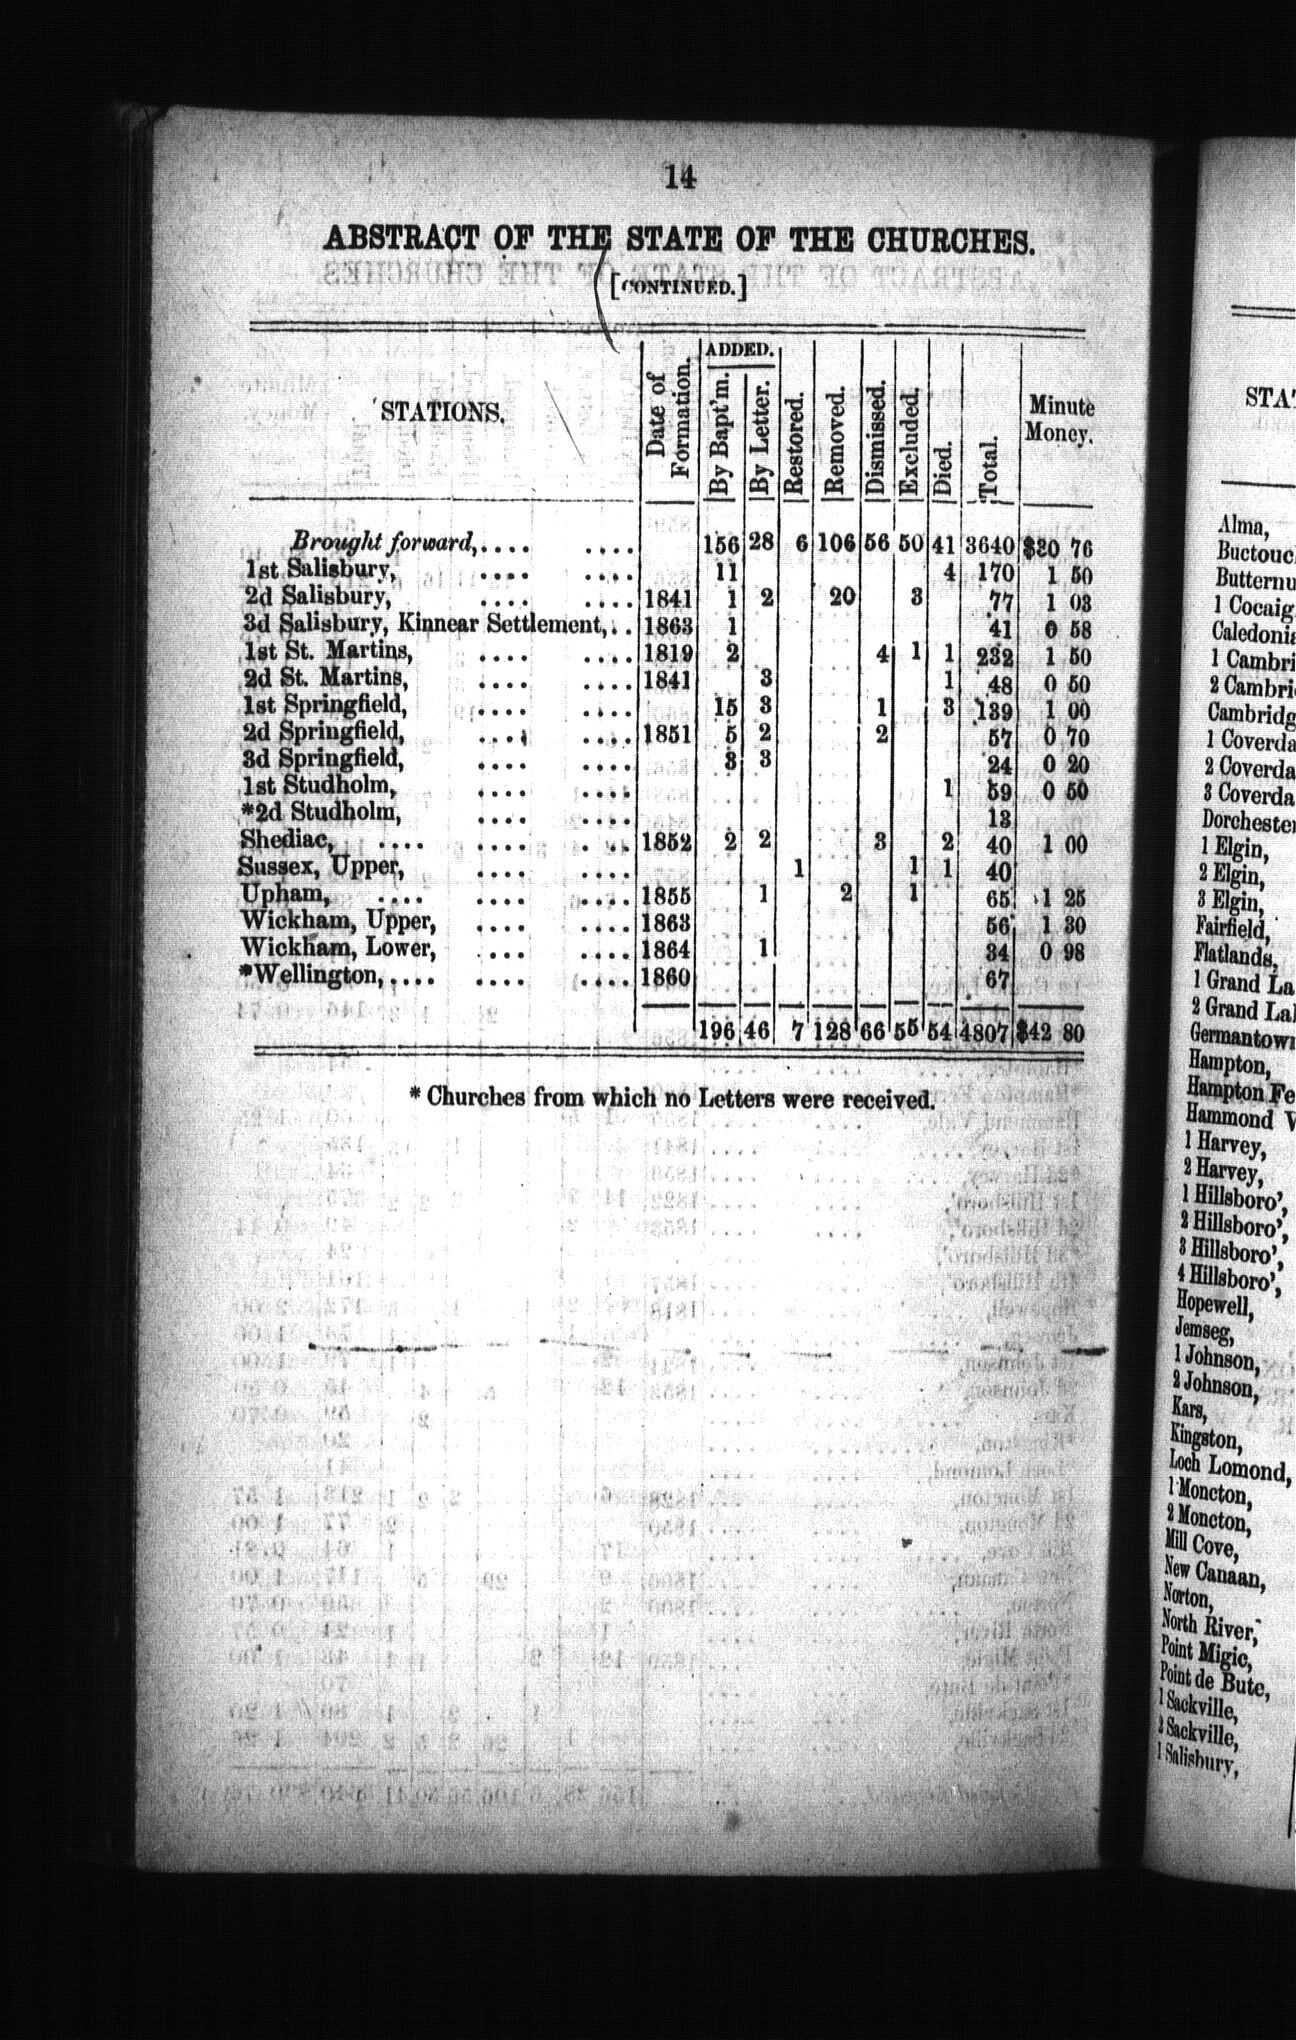 14
ABSTRACT OF THE STATE OF THE CHURCHES.
[CONTINUED.]
STATIONS. Date of Formation. ADDED. By Bapt'm. By Letter. Restored. Removed. Dismissed. Excluded. Died. Total. Minute Money.
Brought forward, .... .... 156 28 6 106 56 50 41 3640 $30 76
1st Salisbury, .... .... 11 4 170 1 50
2d Salisbury, .... .... 1841 1 2 20 3 77 1 03
3d Salisbury, Kinnear Settlement, .. 1863 1 41 0 58
1st St. Martins, .... .... 1819 2 4 1 1 232 1 50
2d St. Martins, .... .... 1841 3 1 48 0 50
1st Springfield, .... .... 15 3 1 3 139 1 00
2d Springfield, .... .... 1851 5 2 2 57 0 70
3d Springfield, .... .... 3 3 24 0 20
1st Studholm, .... .... 1 59 0 50
*2d Studholm, .... .... 13
Shediac, .... .... .... 1852 2 2 3 2 40 1 00
Sussex, Upper, .... .... 1 1 1 40
Upham, .... .... .... 1855 1 2 1 65 1 25
Wickham, Upper, .... .... 1863 56 1 30
Wickham, Lower, .... .... 1864 1 34 0 98
*Wellington, .... .... .... 1860 67
196 46 7 128 66 55 54 4807 $42 80
* Churches from which no Letters were received.
STAT
Alma,
Buctouc
Butternu
1 Cocaig
Caledonia
1 Cambri
2 Cambri
Cambridg
1 Coverda
2 Coverda
3 Coverda
Dorchester
1 Elgin,
2 Elgin,
3 Elgin,
Fairfield,
Flatlands,
1 Grand La
2 Grand Lal
Germantown
Hampton,
Hampton Fe
Hammond V
1 Harvey,
2 Harvey,
1 Hillsboro',
2 Hillsboro',
3 Hillsboro',
4 Hillsboro',
Hopewell,
Jemseg,
1 Johnson,
2 Johnson,
Kars,
Kingston,
Loch Lomond,
1 Moncton,
2 Moncton,
Mill Cove,
New Canaan,
Norton,
North River,
Point Migic,
Point de Bute,
1 Sackville,
2 Sackville,
1 Salisbury,